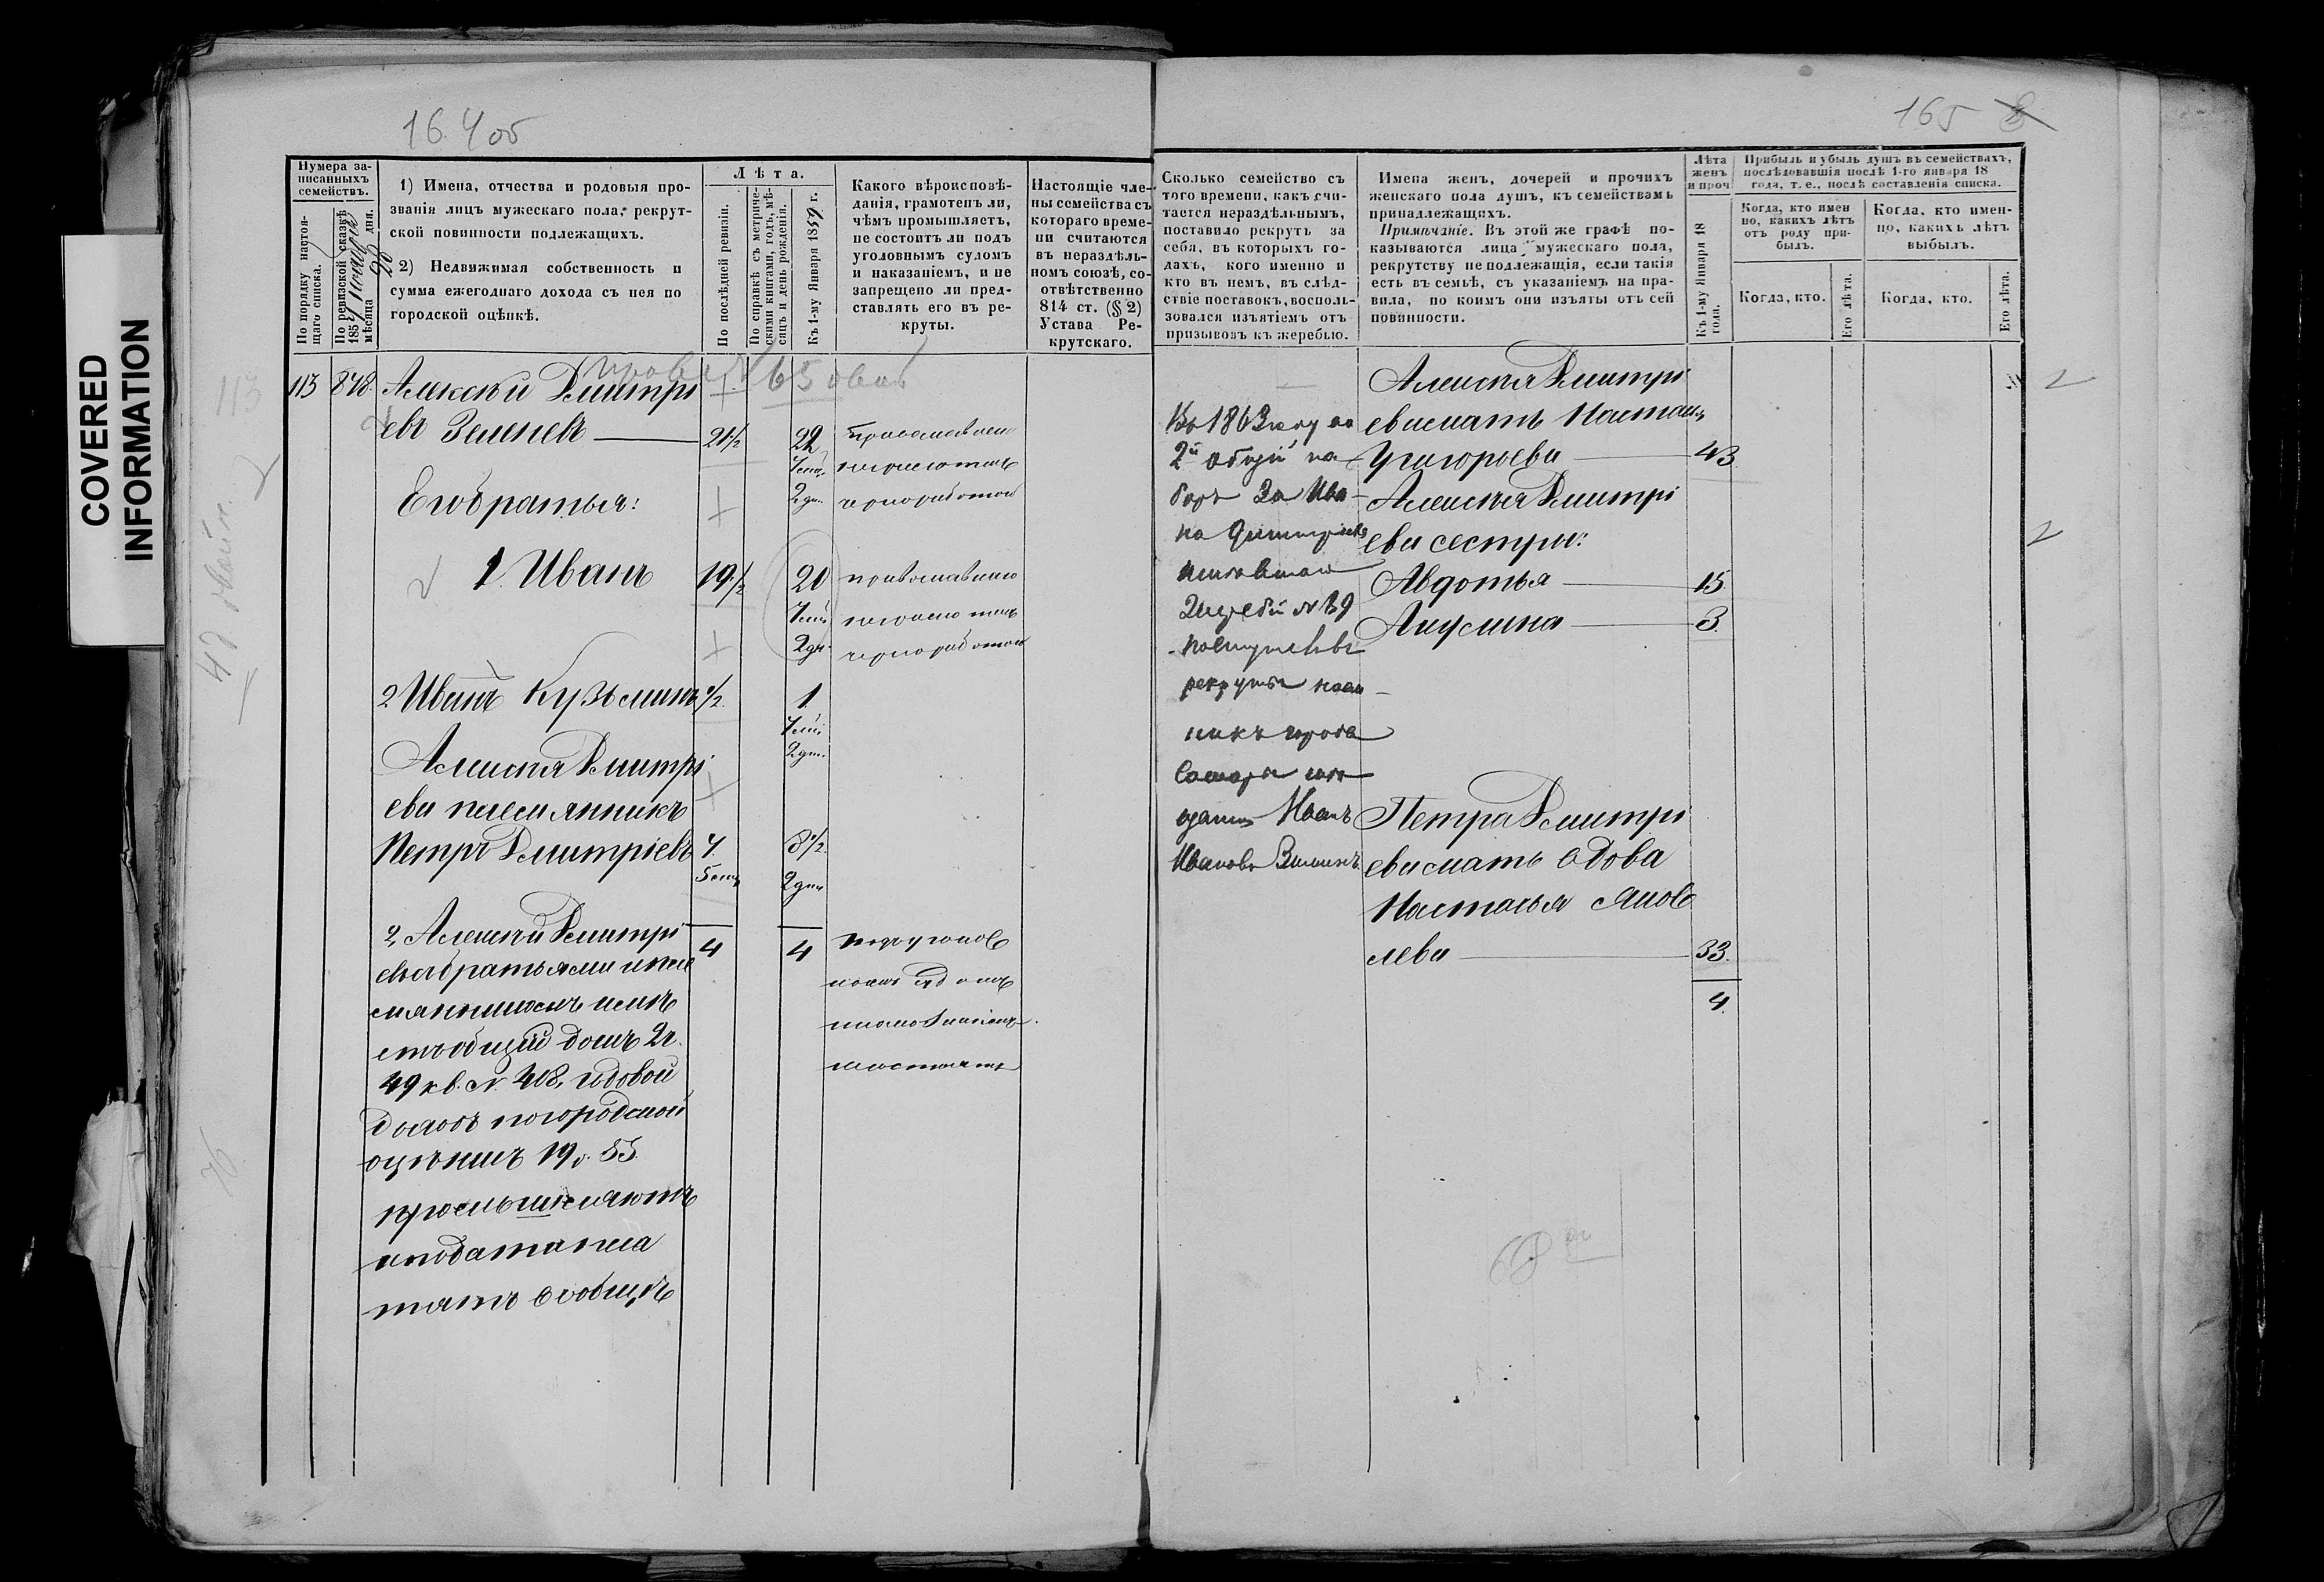 COVERED
INFORMATION
16.
165
Нумера за-
писанныхъ
семействъ.
По порядку настоя-
щаго списка.
По ревизской сказкѣ
185 мѣсяца 28 дня.
1) Имена, отчества и родовыя про-
званія лицъ мужескаго пола, рекрут-
ской повинности подлежащихъ.
2) Недвижимая собственность и
сумма ежегоднаго дохода съ нея по
городской оцѣнкѣ.
Лѣта.
По послѣдней ревизіи.
По справкѣ съ метриче-
скими книгами, годъ, мѣ-
сяцъ и день рожденія.
Къ 1-му Января 1859 г.
Какого вѣроисповѣ-
данія, грамотенъ ли,
чѣмъ промышляетъ,
не состоитъ ли подъ
уголовнымъ судомъ
и наказаніемъ, и не
запрещено ли пред-
ставлять его въ ре-
круты.
Настоящіе чле-
ны семейства съ
котораго време-
ни считаются
въ нераздѣль-
номъ союзѣ, со-
отвѣтственно
814 ст. (§ 2)
Устава Ре-
крутскаго.
113 848 Алексѣй Дмитрі
евъ Зеленевъ 21½ 22
7 2 дн.
Его братья:
1. Иванъ 19½ 20
7 2 дн.
2 Иванъ Кузьминъ ½ 1
7 2 дн.
Алексѣя Дмитрі
ева племянникъ
Петръ Дмитріевъ 7. 8½
5 2 дн
2, Алексѣй Дмитрі 4 4
евъ съ братьями и пле
мянникомъ имѣ
етъ общій домъ 2 ч.
49 кв. № 408, годовой
доходъ по городской
оцѣнкѣ 19 р. 55.
промышляютъ
и подати пла
тятъ вообще
православнаго
православнаго
Сколько семейство съ
того времени, какъ счи-
тается нераздѣльнымъ,
поставило рекрутъ за
себя, въ которыхъ го-
дахъ, кого именно и
кто въ немъ, въ слѣд-
ствіе поставокъ, восполь-
зовался изъятіемъ отъ
призывовъ къ жеребью.
Имена женъ, дочерей и прочихъ
женскаго пола душъ, къ семействамъ
принадлежащихъ.
Примѣчаніе. Въ этой же графѣ по-
казываются лица мужескаго пола,
рекрутству не подлежащія, если такія
есть въ семьѣ, съ указаніемъ на пра-
вила, по коимъ они изъяты отъ сей
повинности.
Лѣта
женъ
и проч
Къ 1-му Января 18
года.
Прибыль и убыль душъ въ семействахъ,
послѣдовавшія послѣ 1-го января 18
года, т. е., послѣ составленія списка.
Когда, кто имен
но, какихъ лѣтъ
отъ роду при-
былъ.
Когда, кто имен-
но, какихъ лѣтъ
выбылъ.
Когда, кто.
Его лѣта.
Когда, кто.
Его лѣта.
Въ 1863 году во
2й общій на
боръ За Ива
на Дмитріева
жребій № 39
поступилъ въ
рекруты
города
Самары
Иванъ
Ивановъ
Алексѣя Дмитрі
ева мать Настась
Григорьева 43
Алексѣя Дмитрі
ева сестры:
Авдотья 15
Акулина 3.
Петра Дмитрі
ева мать вдова
Настасья Яков
лева 33.
4.